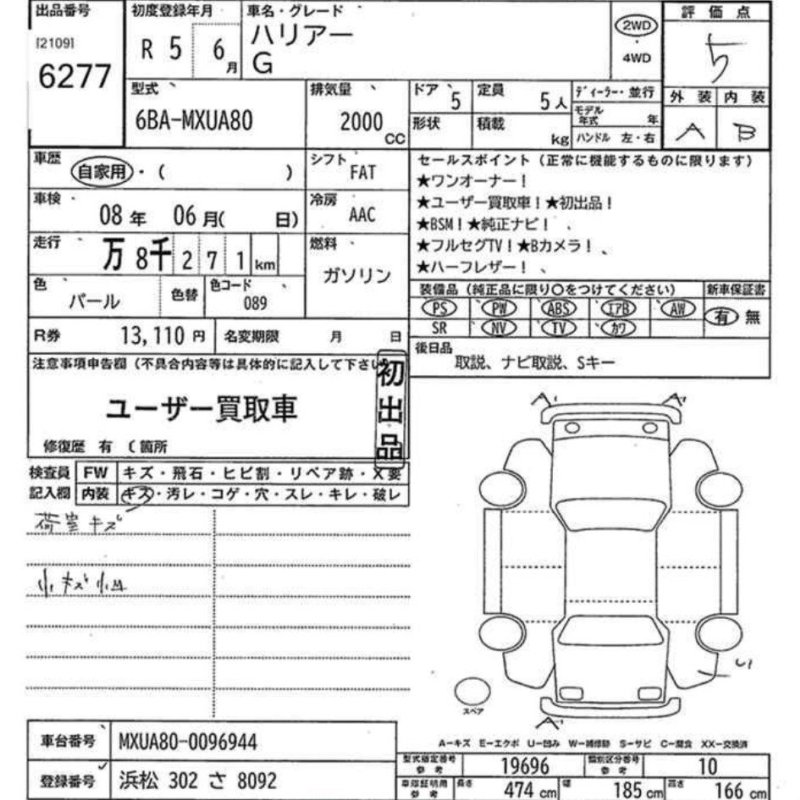 出品番号 初度登録年月 車名・グレード 2WD 評価点
[2109] R 5 6月 ハリアー ・ 5
6277 G 4WD
型式 排気量 ドア 5 定員 5人 ディーラー・並行 外装 内装
6BA-MXUA80 2000 CC 形状 積載 kg モデル年式 年 A B
ハンドル 左・右
車歴 自家用・( ) シフト FAT セールスポイント(正常に機能するものに限ります)
★ワンオーナー!
車検 08年 06月( 日) 冷房 AAC ★ユーザー買取車!★初出品!
★BSM!★純正ナビ!
走行 万 8千 2 7 1 km 燃料 ガソリン ★フルセグTV!★Bカメラ!
★ハーフレザー!
色 パール 色替 色コード 089 装備品(純正品に限り○をつけてください) 新車保証書
PS PW ABS エアB AW 有 無
R券 13,110円 名変期限 月 日 SR NV TV カワ
注意事項申告欄(不具合内容等は具体的に記入して下さい 後日品
取説、ナビ取説、Sキー
ユーザー買取車 初出品
修復歴 有 〔箇所
検査員 FW キズ・飛石・ヒビ割・リペア跡・X要
記入欄 内装 キズ・汚レ・コゲ・穴・スレ・キレ・破レ
荷室キズ
小キズ小凹
A1 A1
U1
スペア
A1
A-キズ E-エクボ U-凹み W-補修跡 S-サビ C-腐食 XX-交換済
車台番号 MXUA80-0096944 型式指定番号 参考 19696 類別区分番号 参考 10
登録番号 浜松 302 さ 8092 車庫証明用 参考 長さ 474 cm 幅 185 cm 高さ 166 cm